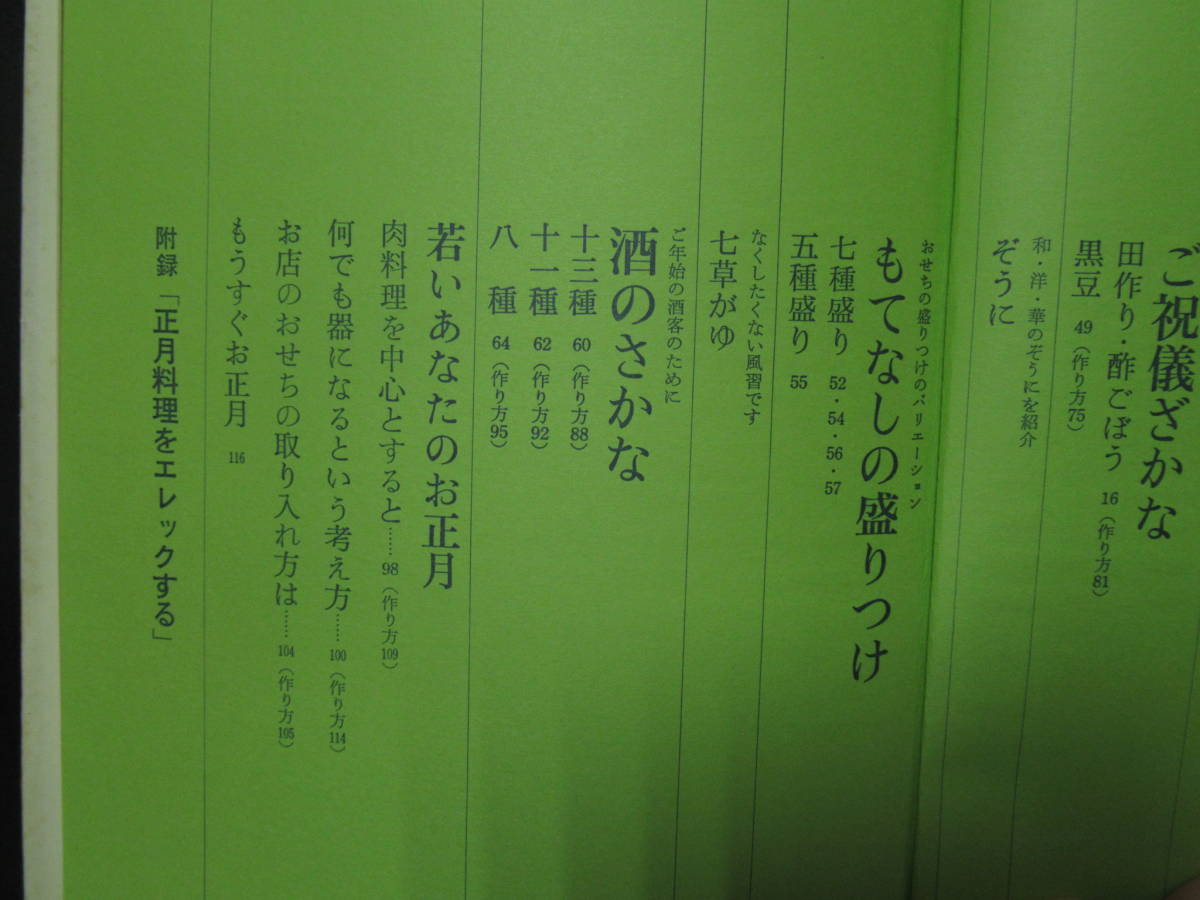 ご祝儀ざかな
田作り・酢ごぼう 16(作り方81)
黒豆 49(作り方75)
和・洋・華のぞうにを紹介
ぞうに
おせちの盛りつけのバリエーション
もてなしの盛りつけ
七種盛り 52・54・56・57
五種盛り 55
なくしたくない風習です
七草がゆ
ご年始の酒客のために
酒のさかな
十三種 60(作り方88)
十一種 62(作り方92)
八種 64(作り方95)
若いあなたのお正月
肉料理を中心とすると…… 98(作り方109)
何でも器になるという考え方…… 100(作り方114)
お店のおせちの取り入れ方は…… 104(作り方105)
もうすぐお正月 116
附録「正月料理をエレックする」